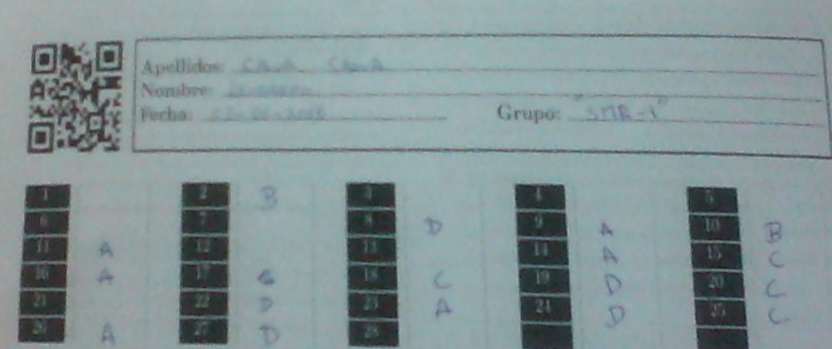 Apellidos: CALA CALA
Nombre:
Fecha:
Grupo: "SMR-1"
1 2 B 3 4 5
6 7 8 D 9 A 10 B
11 A 12 13 14 A 15 C
16 A 17 18 C 19 D 20 C
21 22 D 23 A 24 D 25 C
26 A 27 D 28